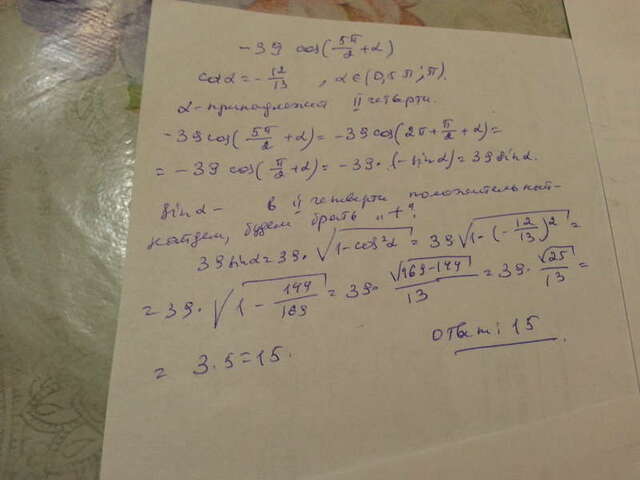 -39 cos(5π/2+α)
cosα=-12/13 , α∈(0,5π;π).
α-принадлежит II четверти.
-39cos(5π/2+α)=-39cos(2π+π/2+α)=
=-39 cos(π/2+α)=-39·(-sinα)=39sinα.
sinα- в II четверти положительный-
найдем, будем брать „+".
39sinα=39·√(1-cos²α)=39√(1-(-12/13)²)=
=39·√(1-144/169)=39·√(169-144)/13=39·√25/13=
= 3·5=15.
Ответ: 15